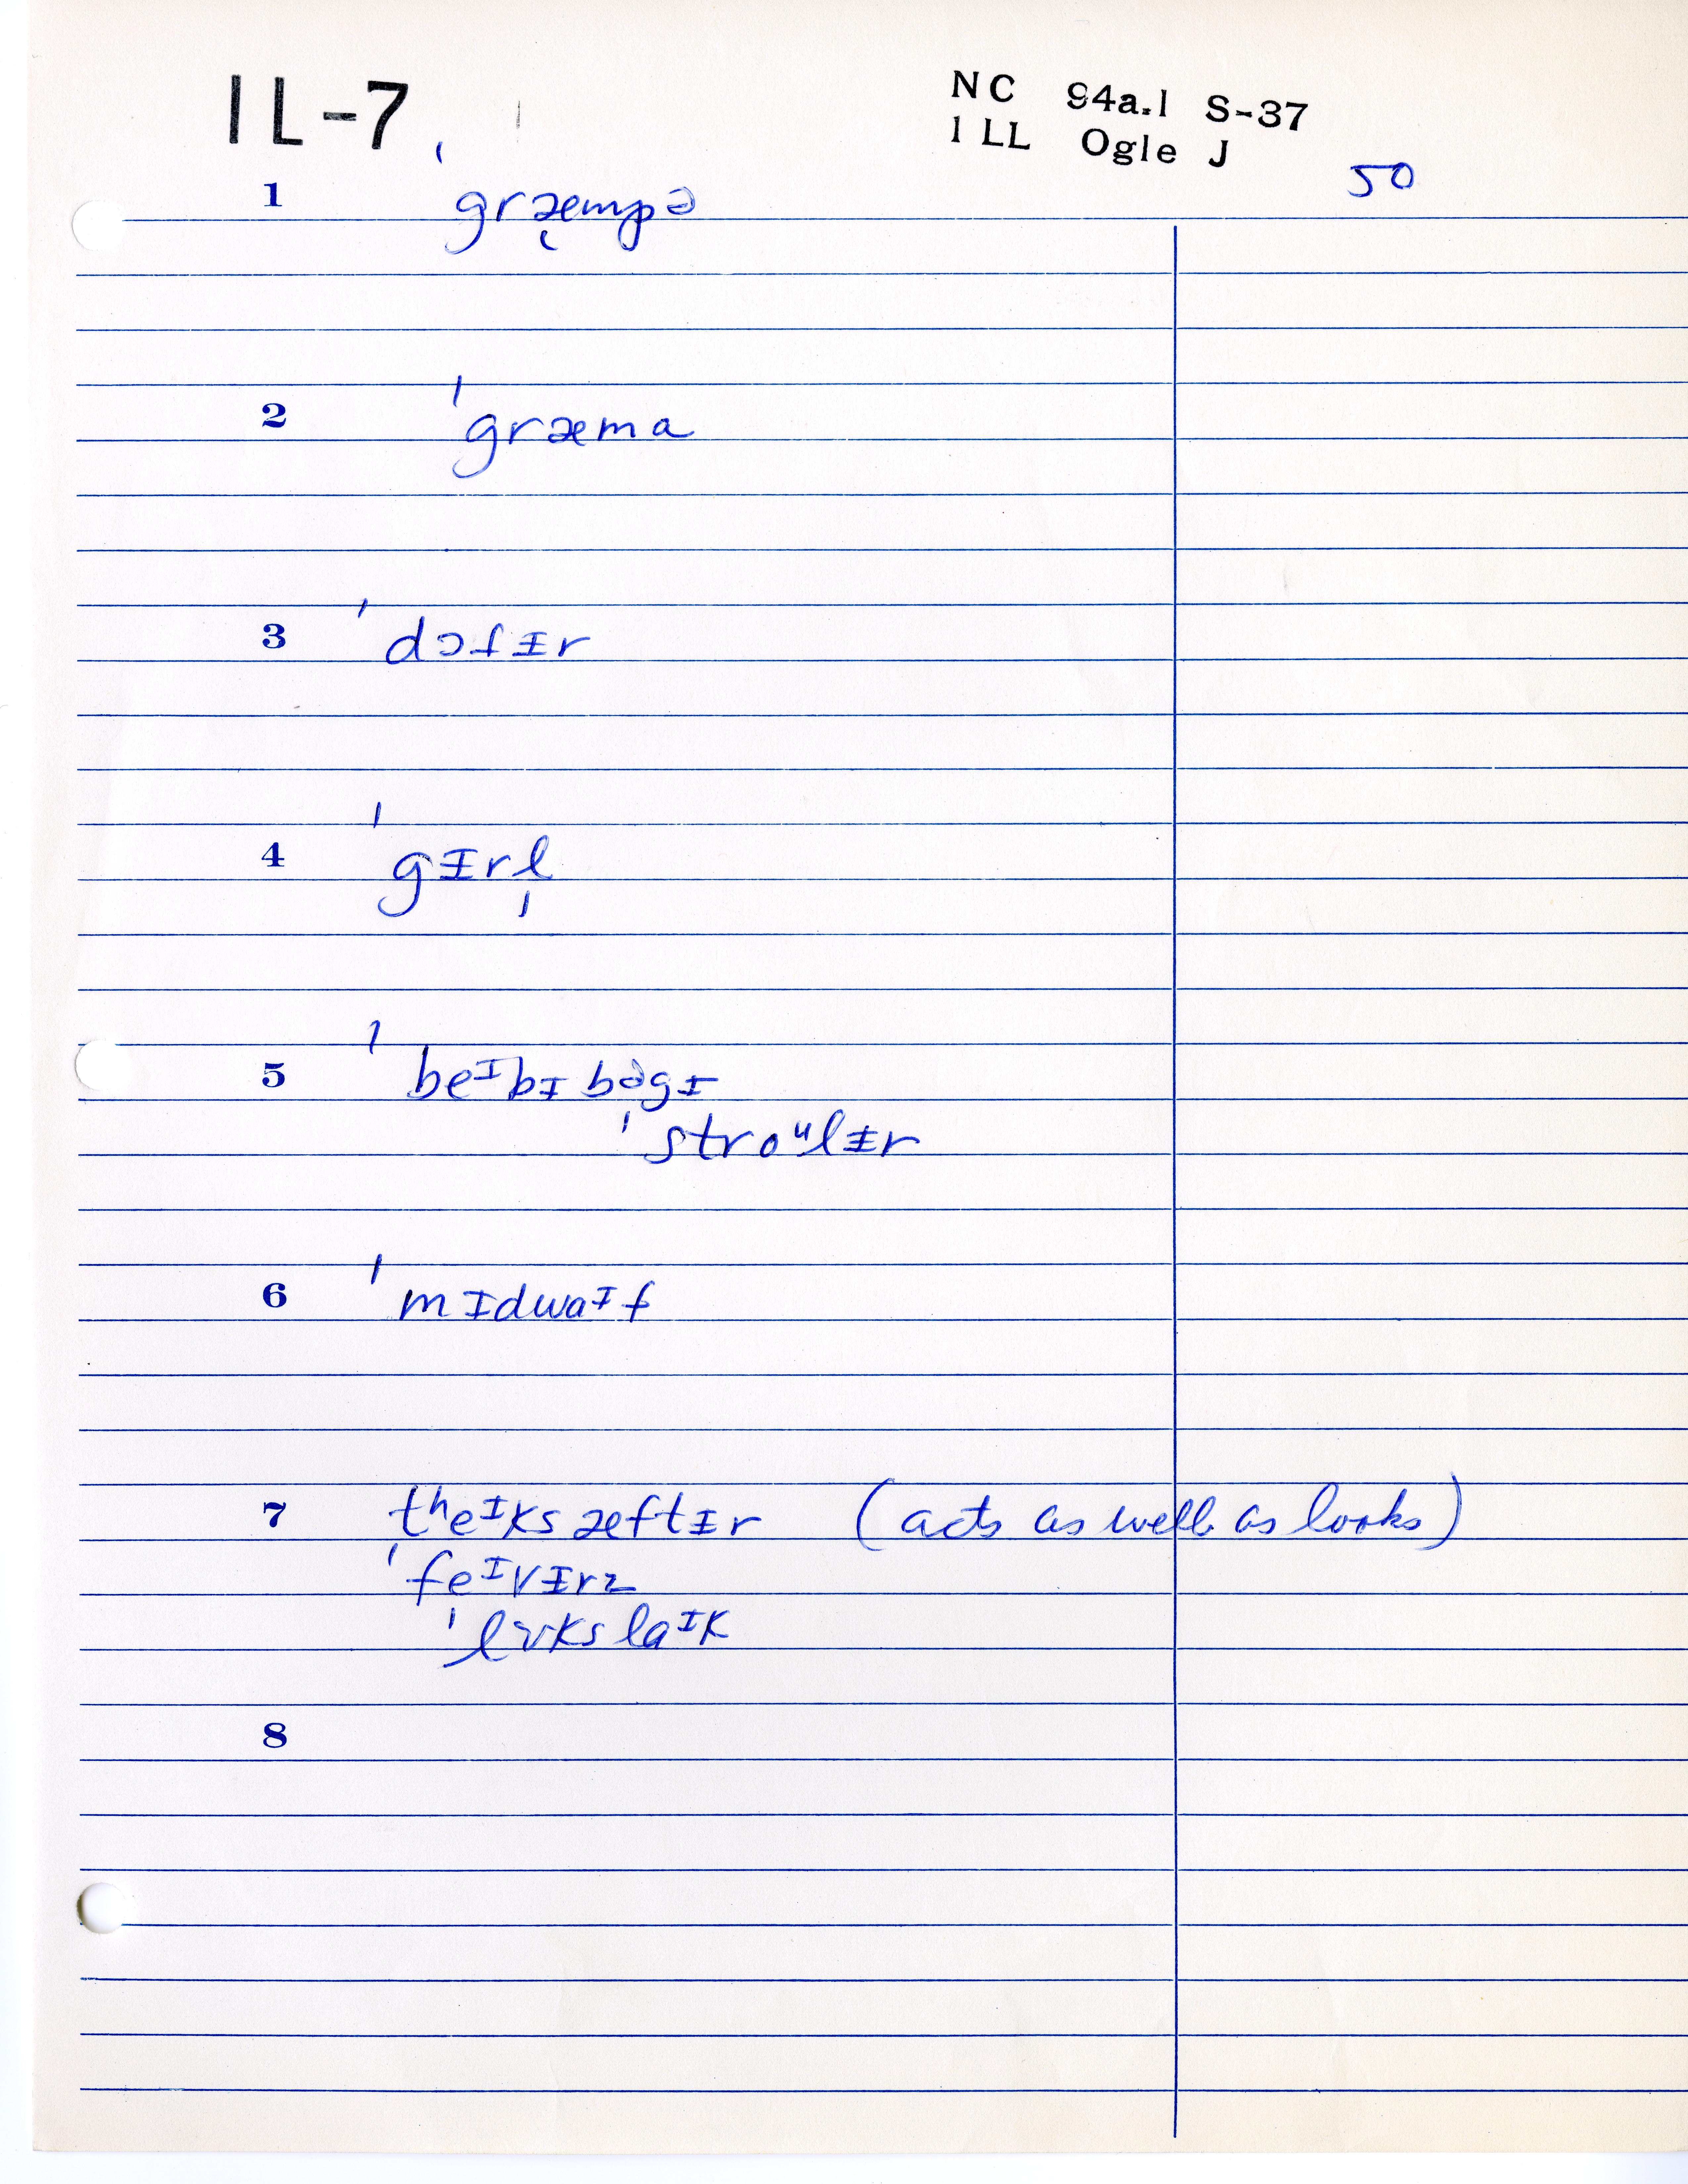 IL-7
NC 94a.1 S-37
ILL Ogle J
50
1 ˈgræ̨mpə
2 ˈgræma
3 ˈdɔfɨr
4 ˈgɨrl̩
5 ˈbeᴵbɪ bəgɪ
ˈstroᵘlɨr
6 ˈmɪdwaᴵf
7 tʰeᴵks æftɨr (acts as well as looks)
ˈfeᴵvɨrz
ˈlʊks laᴵk
8